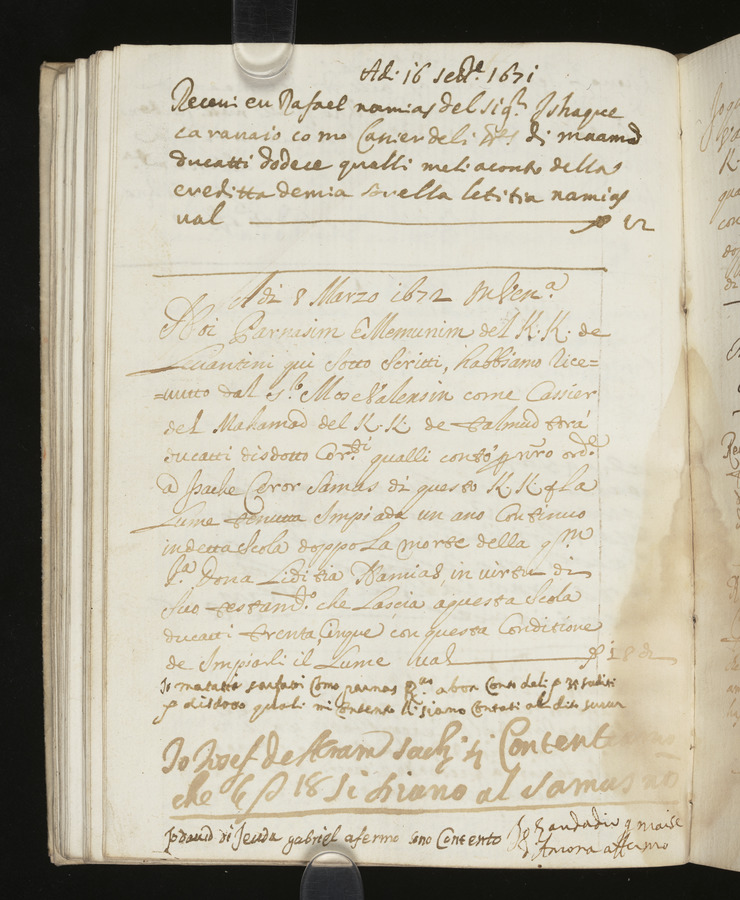 Adi 16 sebre. 1671
Receui eu Rafael namias del sigr. Ishaque
caravaio como Casier deli SSres. di maamd
ducatti dodece qualli meli aconto della
creditta de mia sorella letitia namias
ual 12
Adi 8 Marzo 1672 In Vena.
Noi Parnasim e Memunim del K. K. de
Leuantini qui sotto scritti, habbiamo rice=
=uuto dal sr. Mose Valensin come Cassier
del Mahamad del K. K. de talmud torá
ducatti disdotto Corti. qualli contó nro orde.
a Isache Ceror Samas di questo K. K. La
Lume tenuta Impiada un ano Continuo
in detta scola doppo La morte della qm.
Sa. Dona Liditia Namias, in uirtu di
suo testamto. che Lascia á questa scola
ducatti trenta Cinque con questa Conditione
de Impiarli il Lume ual 18 di
Io matatia como parnas a bon Conto deli
disdoto quali mi Contento siano Contati al dito
Io Josef Content
che 18 si diano al samas
Io dauid di Jeuda gabriel afermo sono Contento
affermo